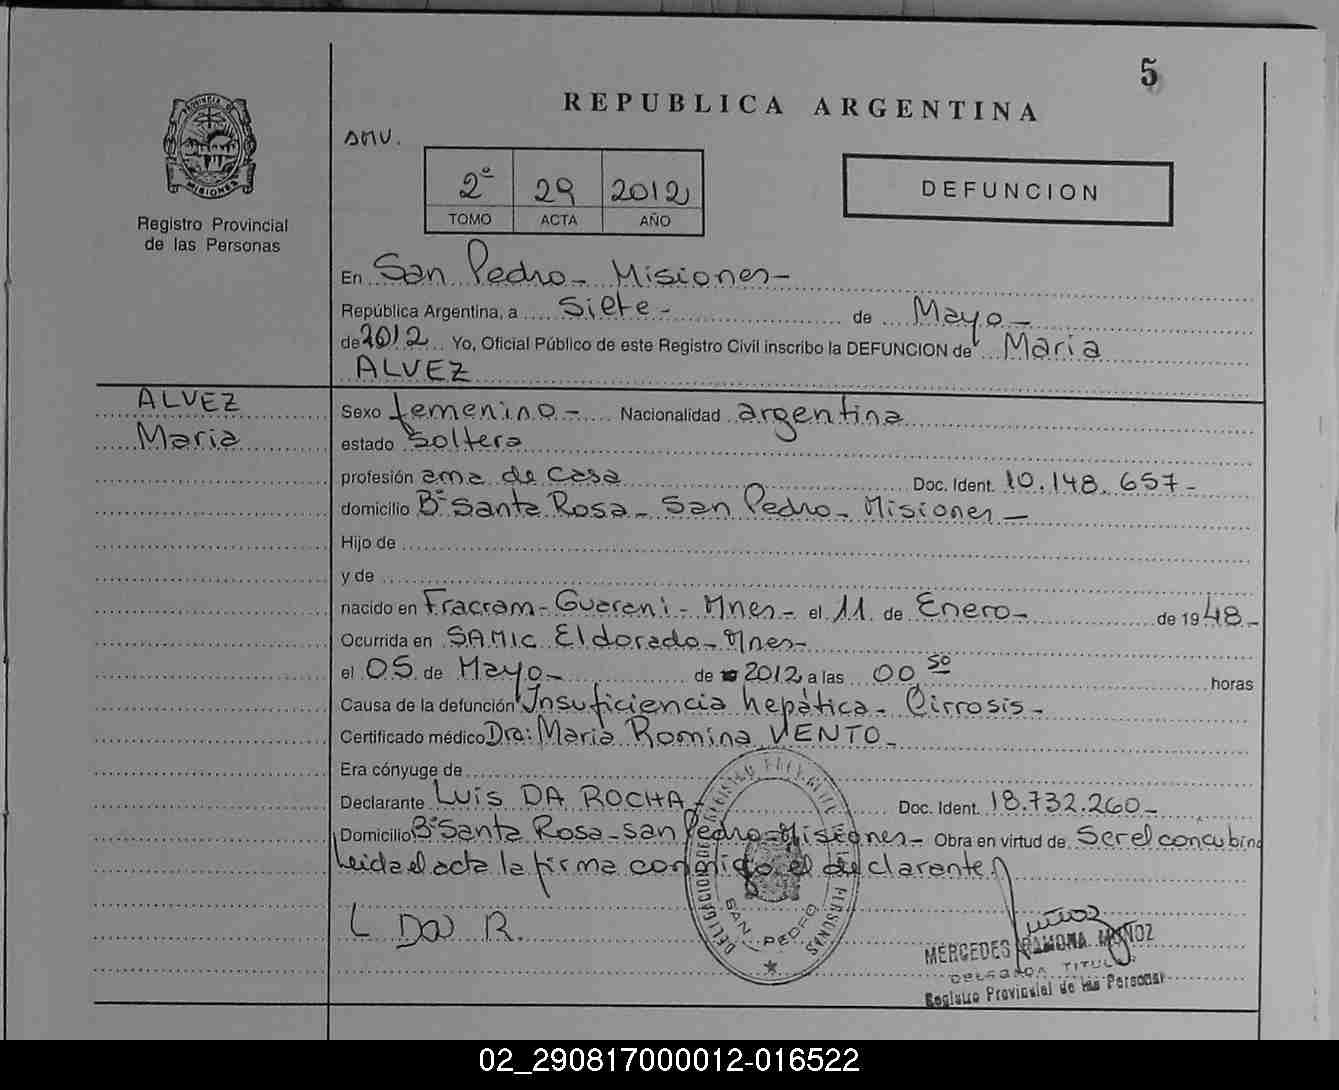 5
REPUBLICA ARGENTINA
PROVINCIA DE MISIONES
Registro Provincial
de las Personas
2º 29 2012
TOMO ACTA AÑO
DEFUNCION
En San Pedro - Misiones -
República Argentina, a Siete - de Mayo -
de 2012 Yo, Oficial Público de este Registro Civil inscribo la DEFUNCION de Maria
ALVEZ
ALVEZ
Maria
Sexo femenino - Nacionalidad argentina
estado Soltera
profesión ama de casa Doc. Ident. 10.148.657 -
domicilio Bº Santa Rosa - San Pedro - Misiones -
Hijo de
y de
nacido en Fracram - Guarani - Mnes - el 11 de Enero - de 1948 -
Ocurrida en SAMIC Eldorado - Mnes -
el 05 de Mayo - de 2012 a las 00 50 horas
Causa de la defunción Insuficiencia hepática - Cirrosis -
Certificado médico Dra: Maria Romina VENTO -
Era cónyuge de
Declarante LUIS DA ROCHA - Doc. Ident. 18.732.260 -
Domicilio Bº Santa Rosa - San Pedro - Misiones - Obra en virtud de Ser el concubino
Leida el acta la firma conmigo el declarante
L Da R.
SAN PEDRO
MERCEDES RAMONA MUÑOZ
DELEGADA TITULAR
Registro Provincial de las Personas
02_290817000012-016522